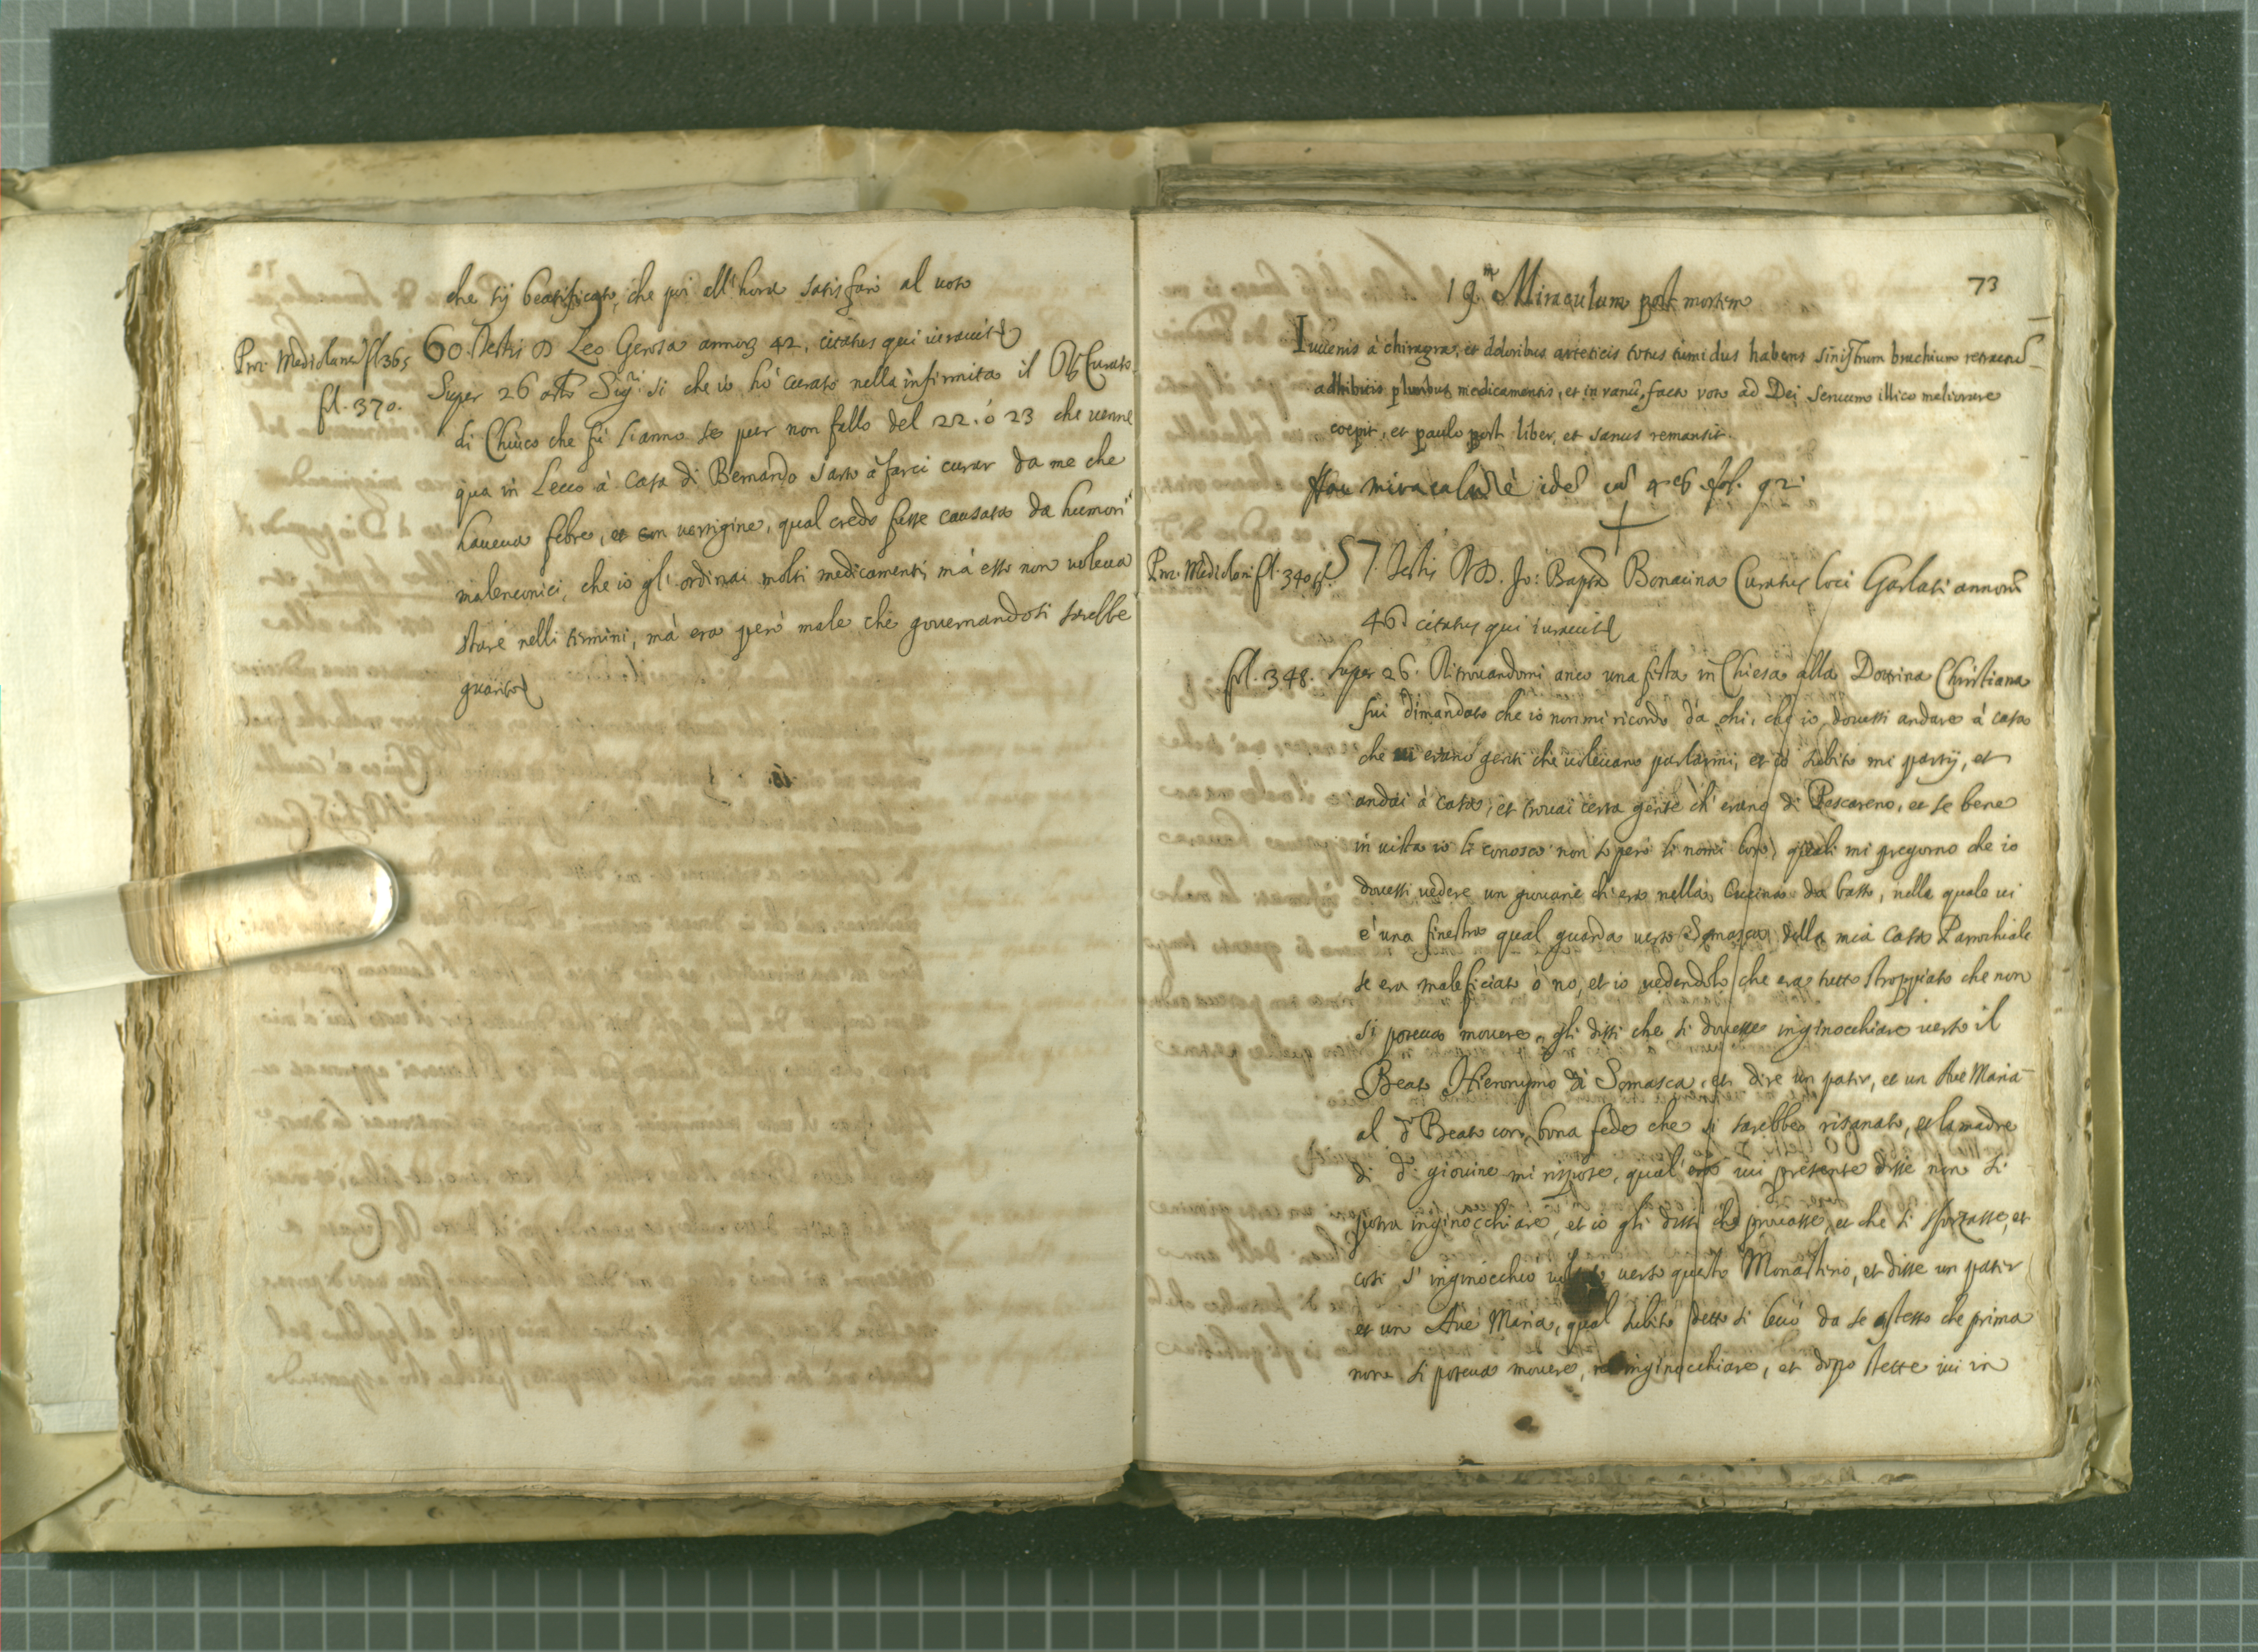 che sij beatificato, che poi all'hora satisfarò al voto
Proc. Mediolani fl 365
60. Testis D Leo Gerosa annorum 42, citatus qui iuravit
fl. 370.
Super 26 art. Sig.r si che io hò curato nella infirmità il Curato
di Chiuso che fù l'anno se pur non fallo del 22. ò 23 che venne
qua in Lecco à casa di Bernardo sarto à farsi curar da me che
haveva febre, et con vertigine, qual credo fusse causata da humori
malenconici, che io gl'ordinai molti medicamenti, mà esso non voleva
stare nelli termini, mà era però male che governandosi sarebbe
guarito
73
19.m Miraculum post mortem
Iuvenis à chiragra, et doloribus arteticis totus tumidus habens sinistrum brachium retractum
adhibitis pluribus medicamentis, et in vanum, facto voto ad Dei servum illico meliorare
coepit, et paulo post liber, et sanus remansit.
Hoc miraculum è idem cum 4 fol. 92.
Proc. Mediolani fl. 340
57. Testis D. Jo: Bapta Bonacina Curatus loci Garlati annorum
46 citatus qui iuravit
fol. 348. Super 26. Ritrovandomi anco una festa in Chiesa alla Dottrina Christiana
fui dimandato che io non mi ricordo da chi, che io dovessi andare à casa
che erano genti che volevano parlarmi, et io subito mi partij, et
andai à casa, et trovai certa gente ch'erano di Pescareno, et se bene
in vista io li conosco non sò però li nomi loro, quali mi pregorno che io
dovessi vedere un giovane ch'era nella Cucina da basso, nella quale vi
è una finestra qual guarda verso Somasca della mia casa Parochiale
se era maleficiato ò no, et io vedendolo che era tutto stroppiato che non
si poteva movere, gli dissi che si dovesse inginocchiare verso il
Beato Hieronymo di Somasca, et dire un pater, et un Ave Maria
al d.o Beato con bona fede che si sarebbe risanato, et la madre
di d.o giovine mi rispose, qual'era ivi presente disse non si
potrà inginocchiare, et io gli dissi che provasse, et che si sforzasse, et
così s'inginocchiò verso questo Monasterio, et disse un pater
et un Ave Maria, qual subito detto si levò da se stesso che prima
non si poteva movere, inginocchiare, et dopo stette ivi in